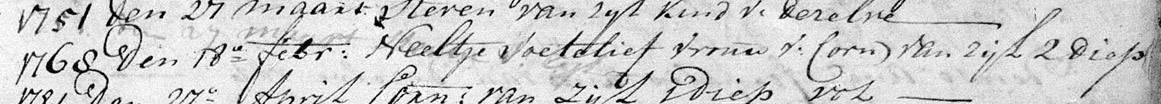 1751 den 27 maart Steven van zyl kind v. dezelve
1768 Den 18e febr: Neeltje Soetelief vrouw v. Corn) van zijl 2 diep
1781 Den 27e April Corn: van Zijl 3 diep vol